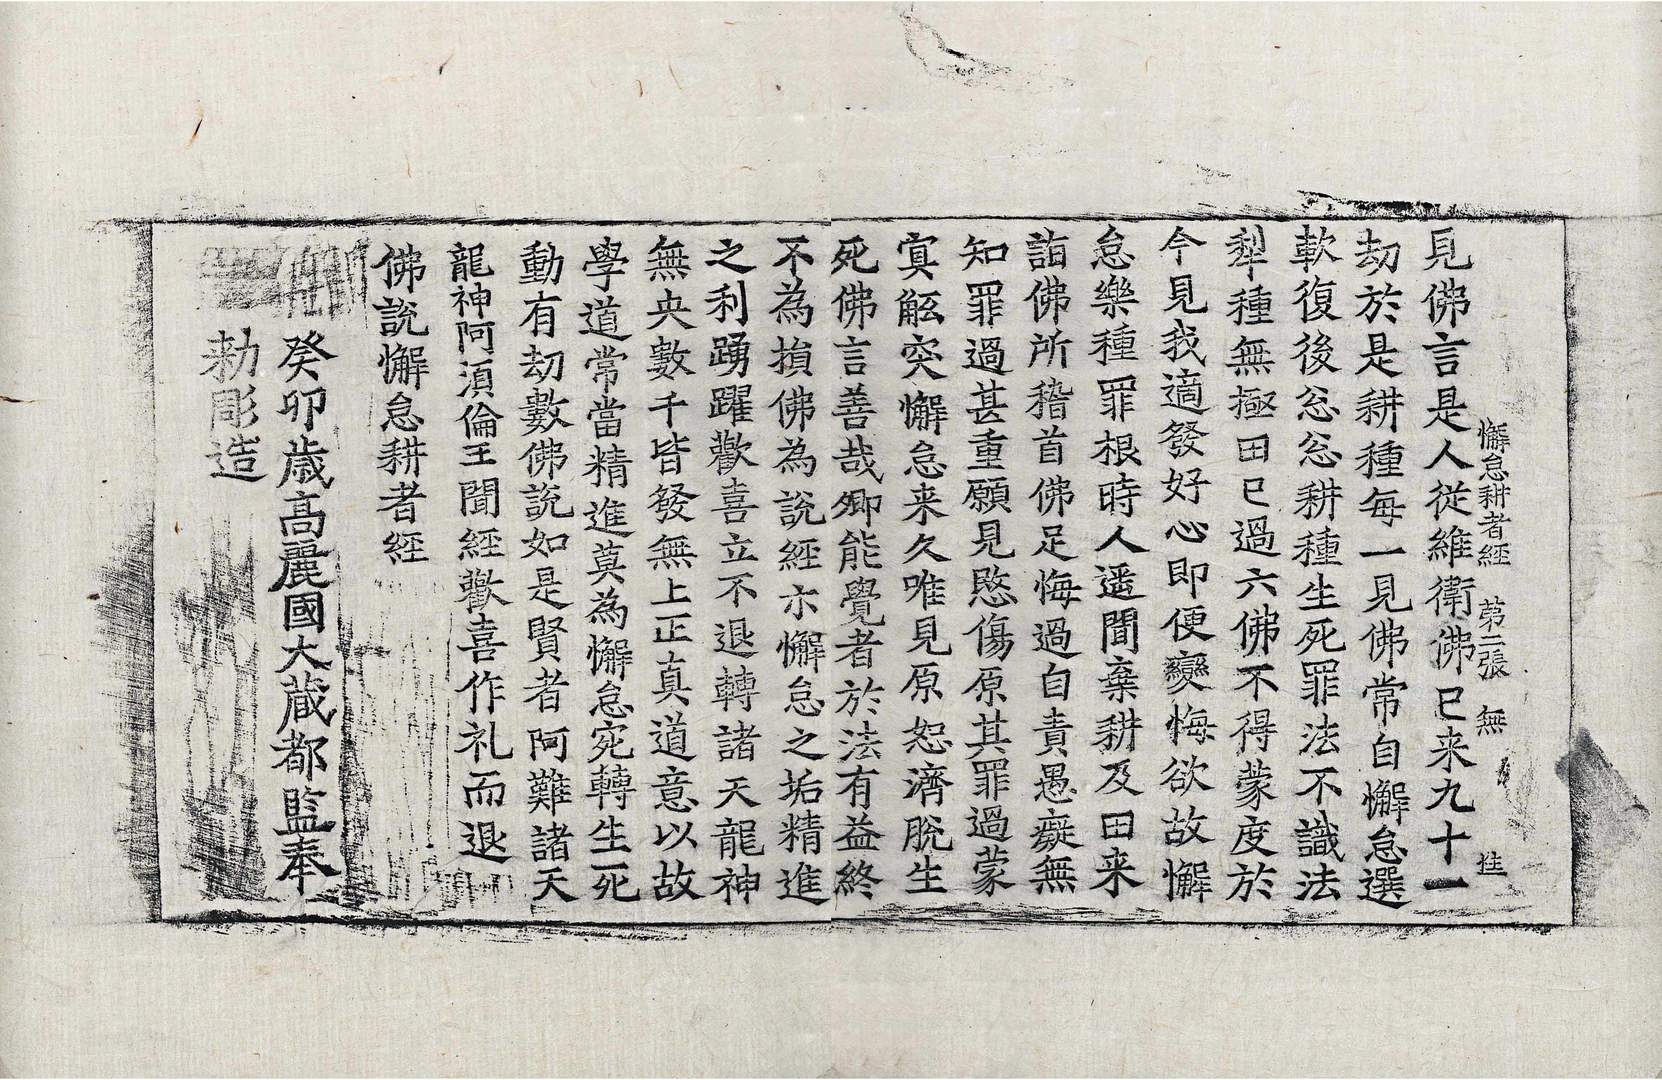 懈怠耕者經 第二張 無
見佛言是人從維衛佛已来九十一
劫於是耕種每一見佛常自懈怠選
軟復後忩忩耕種生死罪法不識法
犁種無極田已過六佛不得蒙度於
今見我適發好心即便變悔欲故懈
怠樂種罪根時人遥聞棄耕及田来
詣佛所稽首佛足悔過自責愚癡無
知罪過甚重願見愍傷原其罪過蒙
冥觝突懈怠来久唯見原恕濟脫生
死佛言善哉卿能覺者於法有益終
不為損佛為說經亦懈怠之垢精進
之利踴躍歡喜立不退轉諸天龍神
無央數千皆發無上正真道意以故
學道常當精進莫為懈怠宛轉生死
動有劫數佛說如是賢者阿難諸天
龍神阿湏倫王聞經歡喜作礼而退
佛說懈怠耕者經
癸卯歳高麗國大蔵都監奉
勑彫造